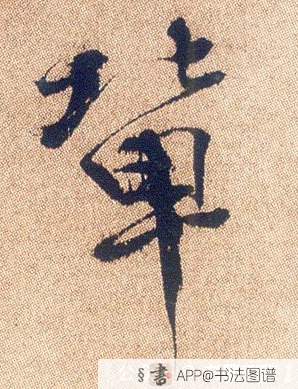 輩
書 APP@书法图谱